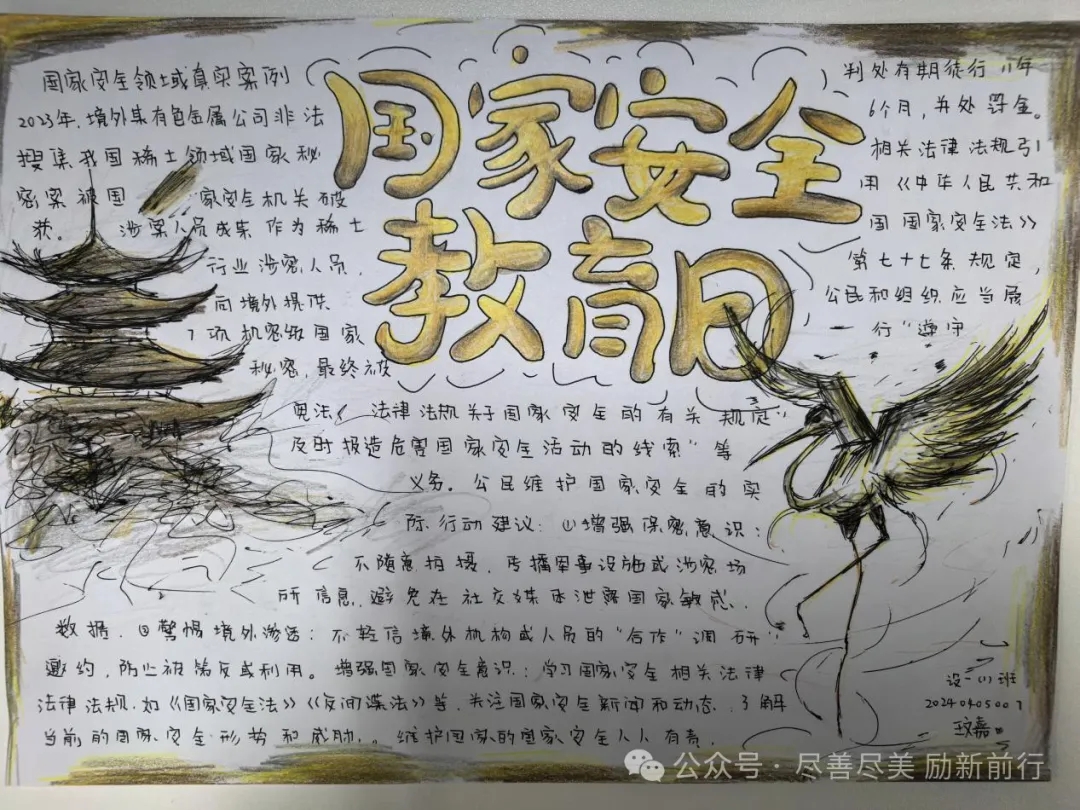 国家安全
教育日
国家安全领域真实案例
2023年,境外某有色金属公司非法
搜集我国稀土领域国家秘
密案被国家安全机关破
获。涉案人员成某作为稀土
行业涉密人员,
向境外提供
7项机密级国家
秘密,最终被
判处有期徒行11年
6个月,并处罚金。
相关法律法规引
用《中华人民共和
国国家安全法》
第七十七条规定,
公民和组织应当履
行"遵守
宪法、法律法规关于国家安全的有关规定"
及时报造危害国家安全活动的线索"等
义务。公民维护国家安全的实
际行动建议:①增强保密意识:
不随意拍摄、传播军事设施或涉密场
所信息,避免在社交媒体泄露国家敏感
数据,②警惕境外渗透:不轻信境外机构或人员的"合作"调研"
邀约,防止被策反或利用。增强国家安全意识:学习国家安全相关法律
法律法规,如《国家安全法》《反间谍法》等,关注国家安全新闻和动态,了解
当前的国家安全形势和威胁。维护国家的国家安全人人有责,
设一(1)班
2024040500
嘉
公众号·尽善尽美 励新前行